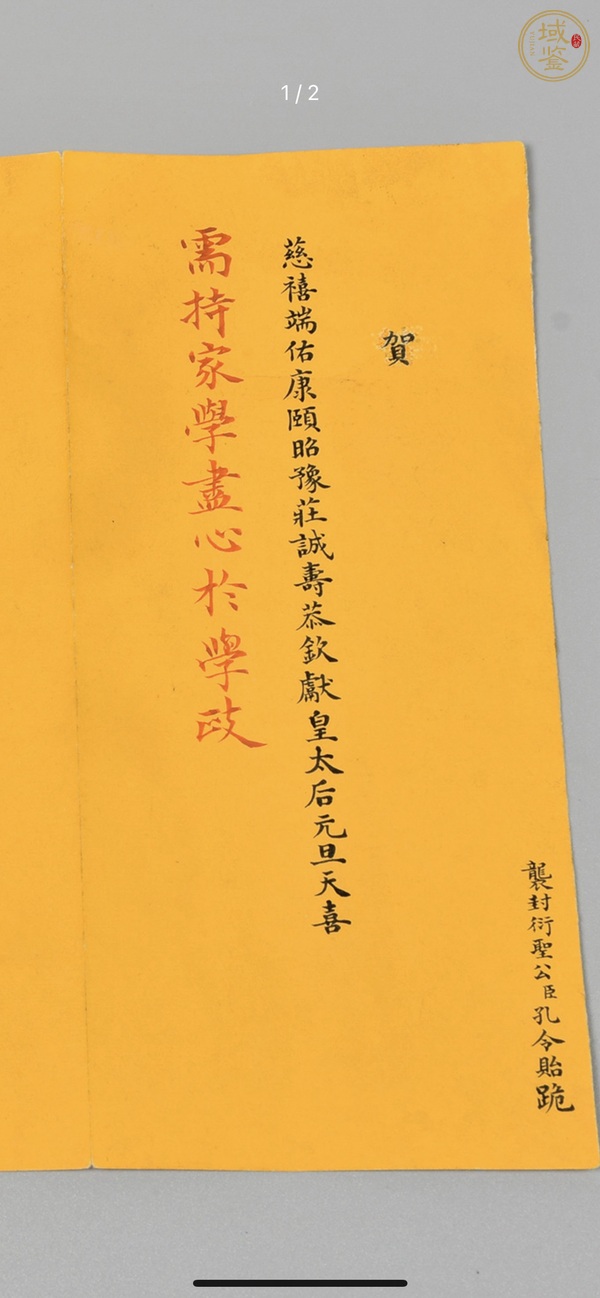 域鉴
1/2
襲封衍聖公臣孔令貽跪
賀
慈禧端佑康頤昭豫莊誠壽恭欽獻皇太后元旦天喜
需持家學盡心於學政